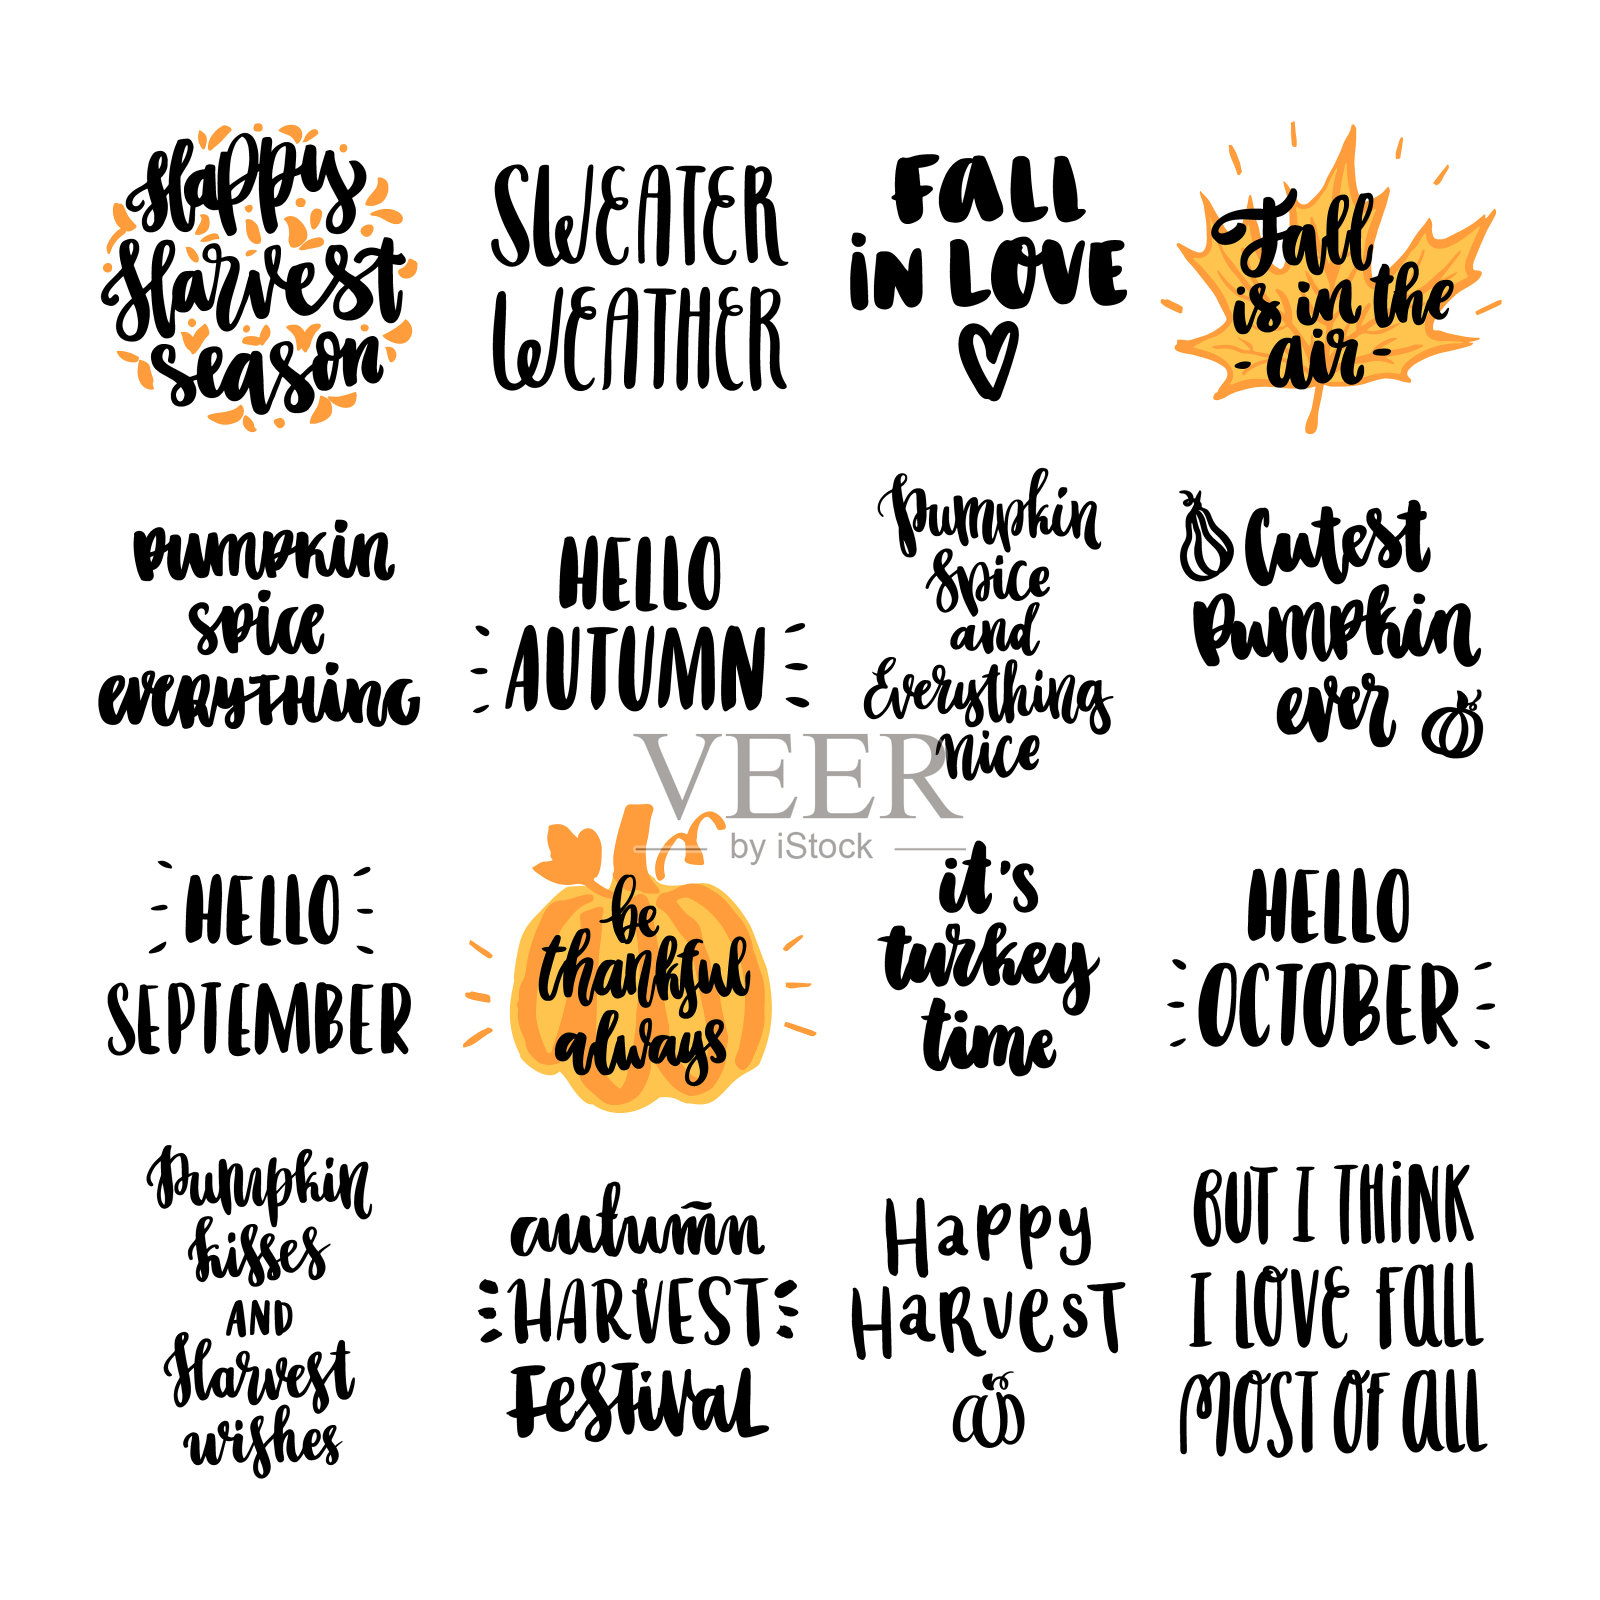 Happy
Harvest
season
SWEATER
WEATHER
FALL
iN LOVE
Fall
is in the
- air -
pumpkin
spice
everything
HELLO
AUTUMN
Pumpkin
Spice
and
Everything
nice
Cutest
Pumpkin
ever
VEER
by iStock
HELLO
SEPTEMBER
be
thankful
always
it's
turkey
time
HELLO
OCTOBER
Pumpkin
kisses
AND
Harvest
wishes
autumn
HARVEST
FESTIVAL
Happy
Harvest
BUT I THiNK
I LOVE FALL
MOST OF ALL